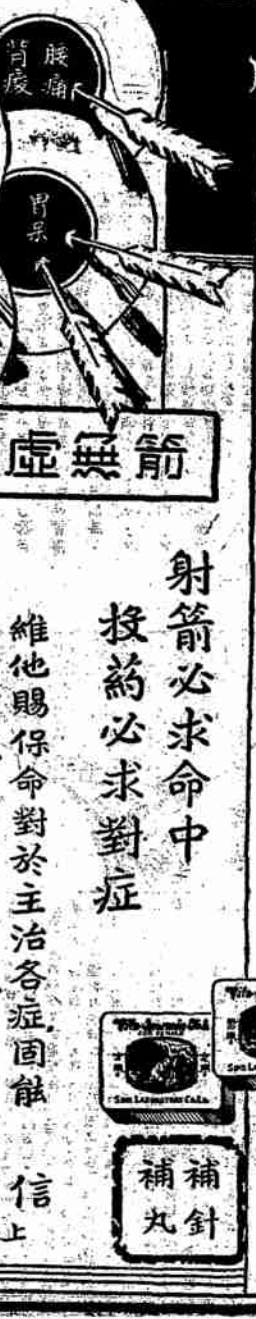 腰痛
背痠
胃呆
箭無虛
射箭必求命中
投葯必求對症
維他賜保命對於主治各症固能
信
上
補針
補丸